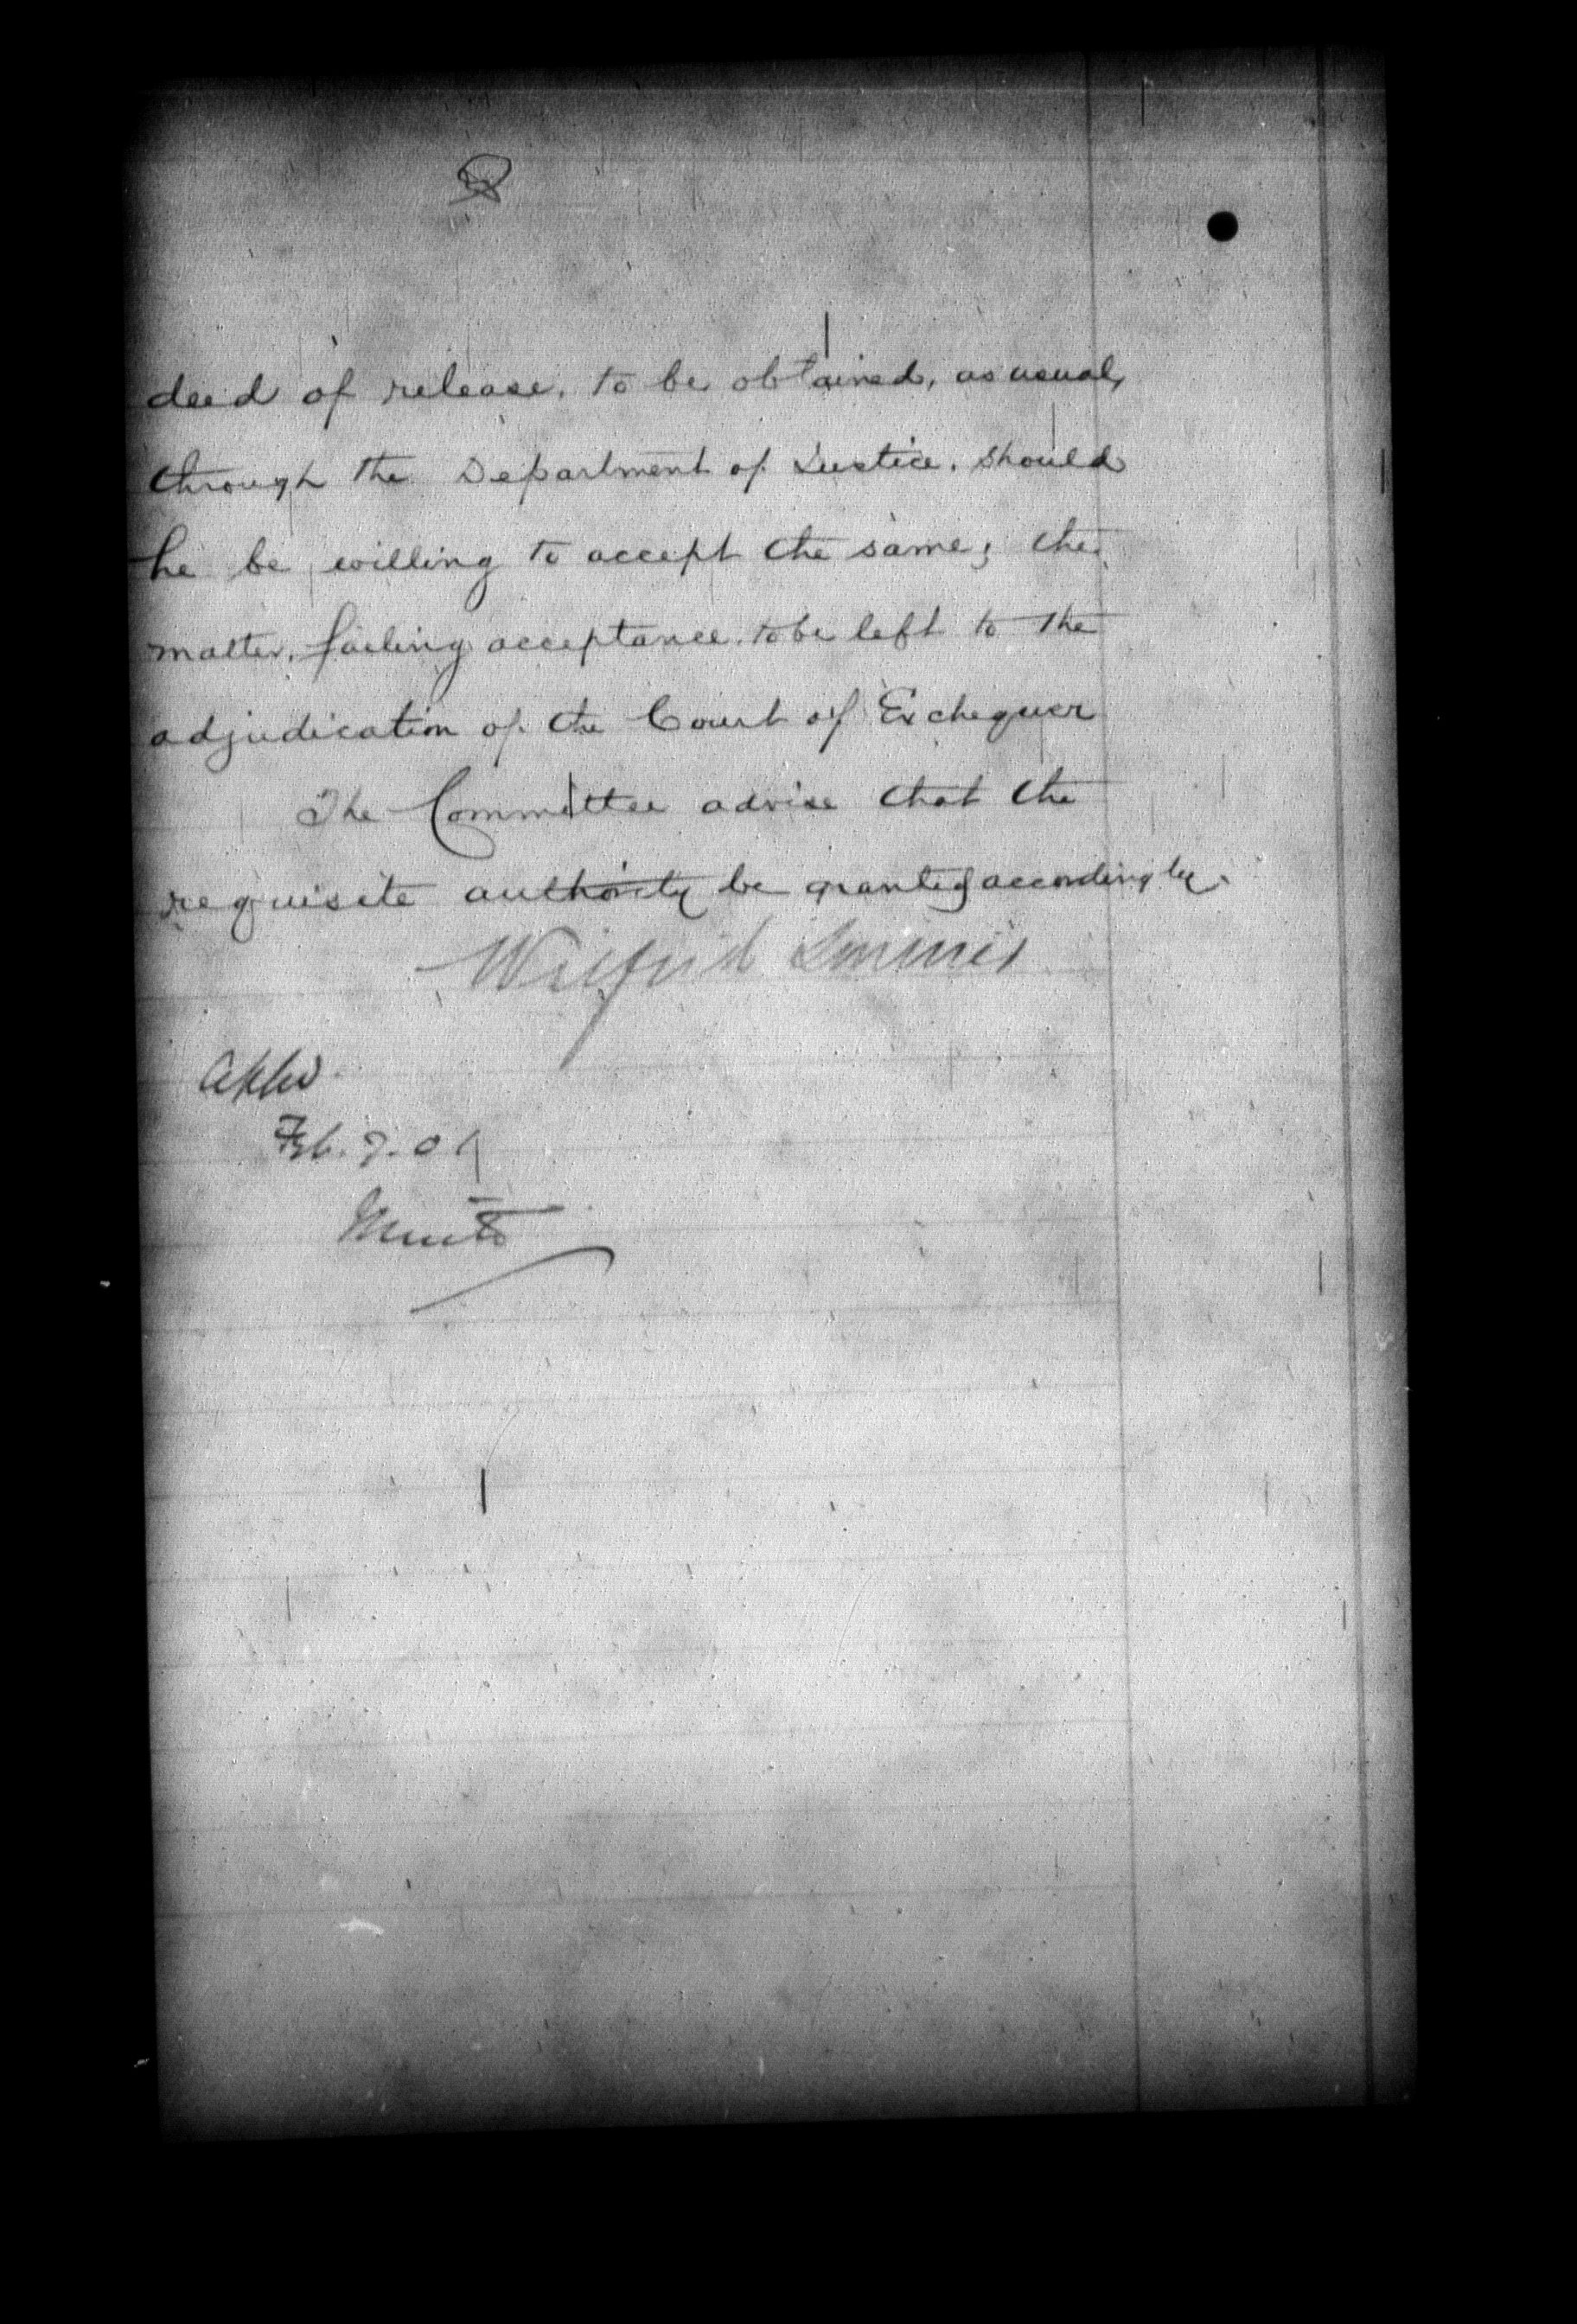 deed of release, to be obtained, as usual,
through the Department of Justice, should
he be willing to accept the same; the
matter, failing acceptance, to be left to the
adjudication of the Court of Exchequer
The Committee advise that the
requisite authority be granted accordingly.
Wilfrid Laurier
Feb. 7. 01
Minto